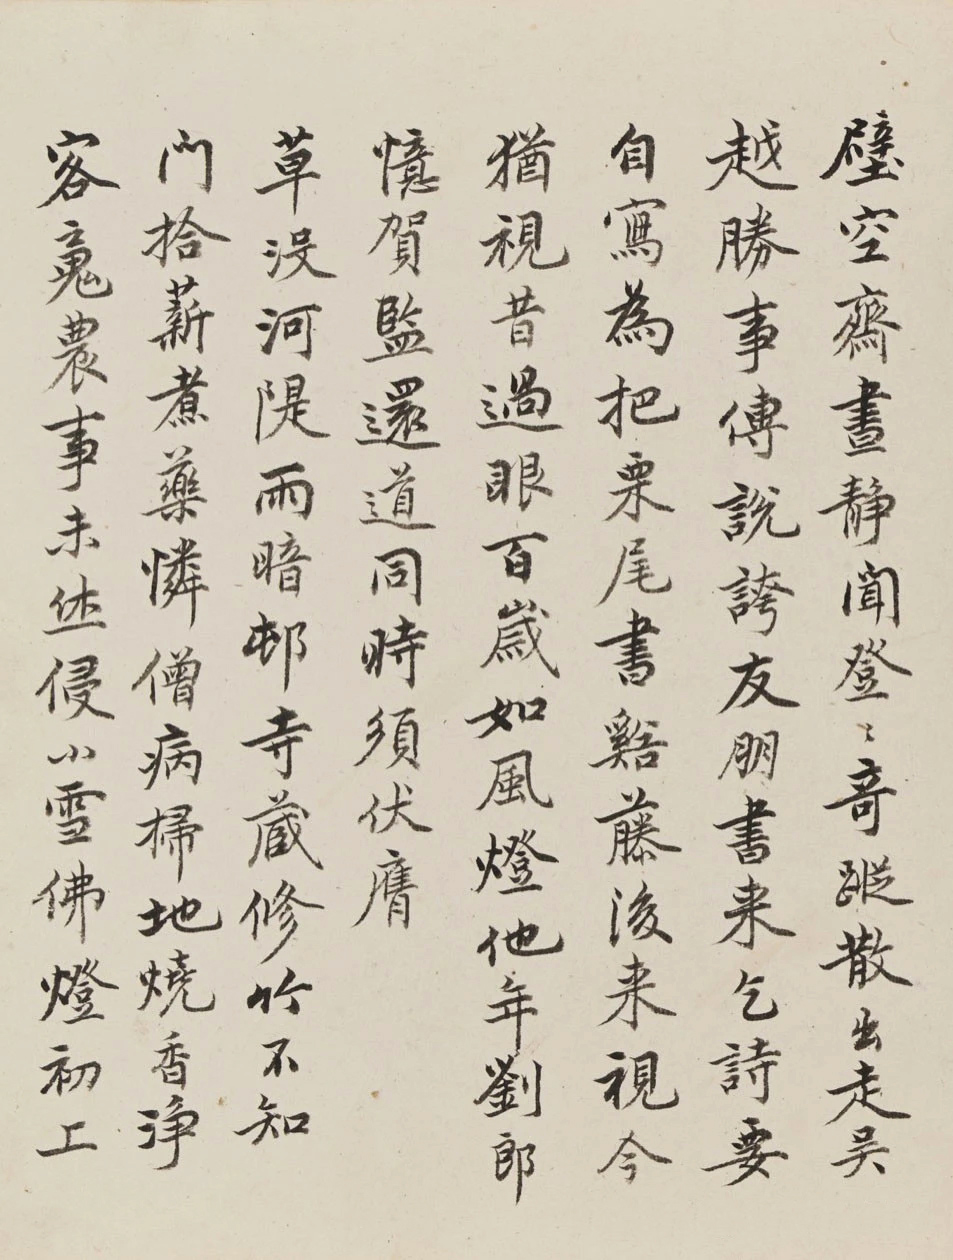 壁空齋晝靜聞登〻奇蹤散出走吴
越勝事傳說誇友朋書来乞詩要
自寫為把栗尾書谿藤後来視今
猶視昔過眼百歲如風燈他年劉郎
憶賀監還道同時須伏膺
草没河隄雨暗邨寺藏修竹不知
門拾薪煮藥憐僧病掃地燒香淨
客䰟農事未休侵小雪佛燈初上